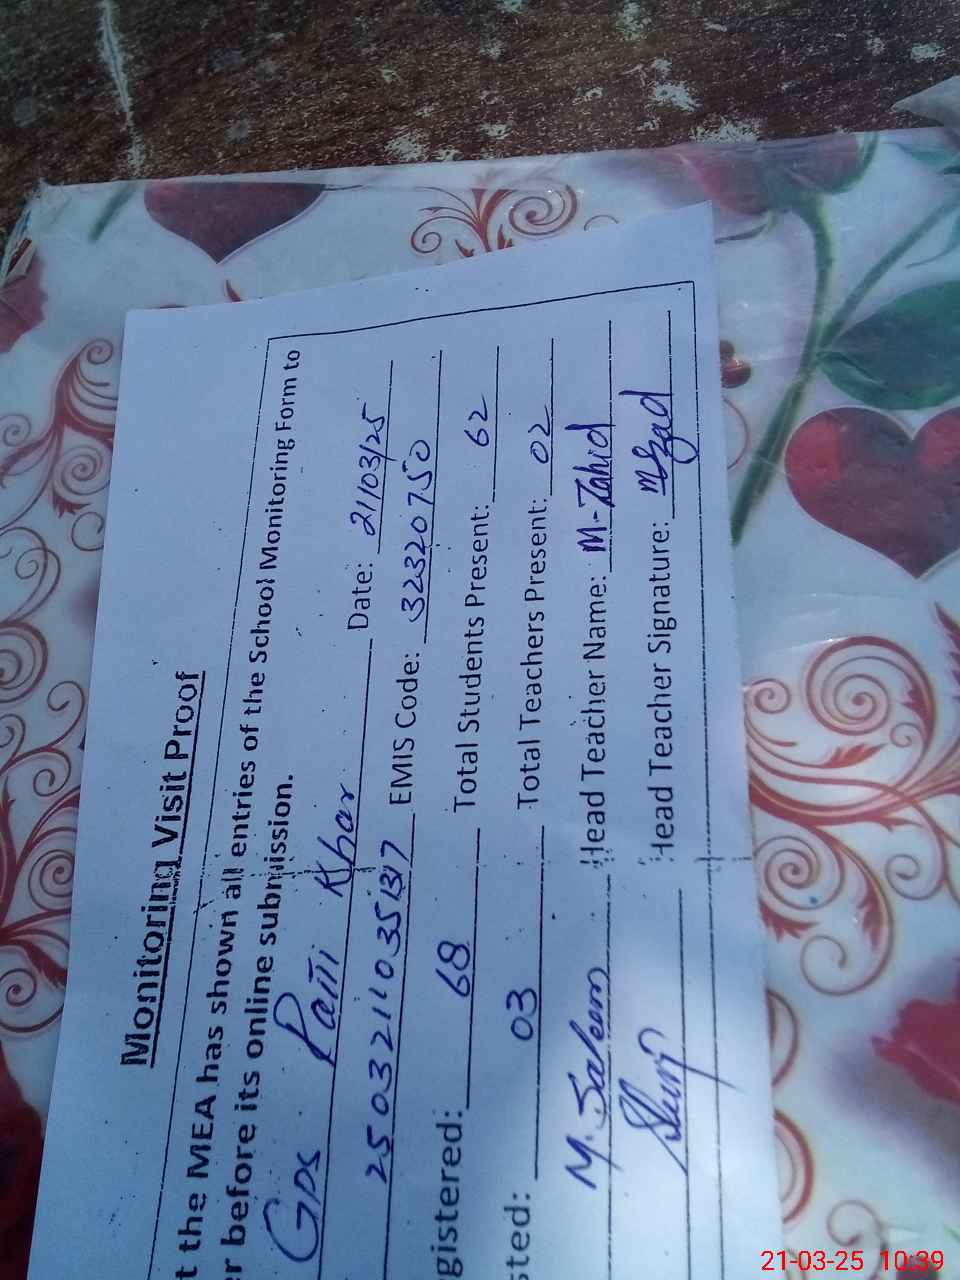 Monitoring Visit Proof
t the MEA has shown all entries of the School Monitoring Form to
r before its online submission.
GPS Patti Khar Date: 21/03/25
25032110351317 EMIS Code: 32320750
gistered: 68 Total Students Present: 62
sted: 03 Total Teachers Present: 02
M. Saleem Head Teacher Name: M-Zahid
Head Teacher Signature:
21-03-25 10:39